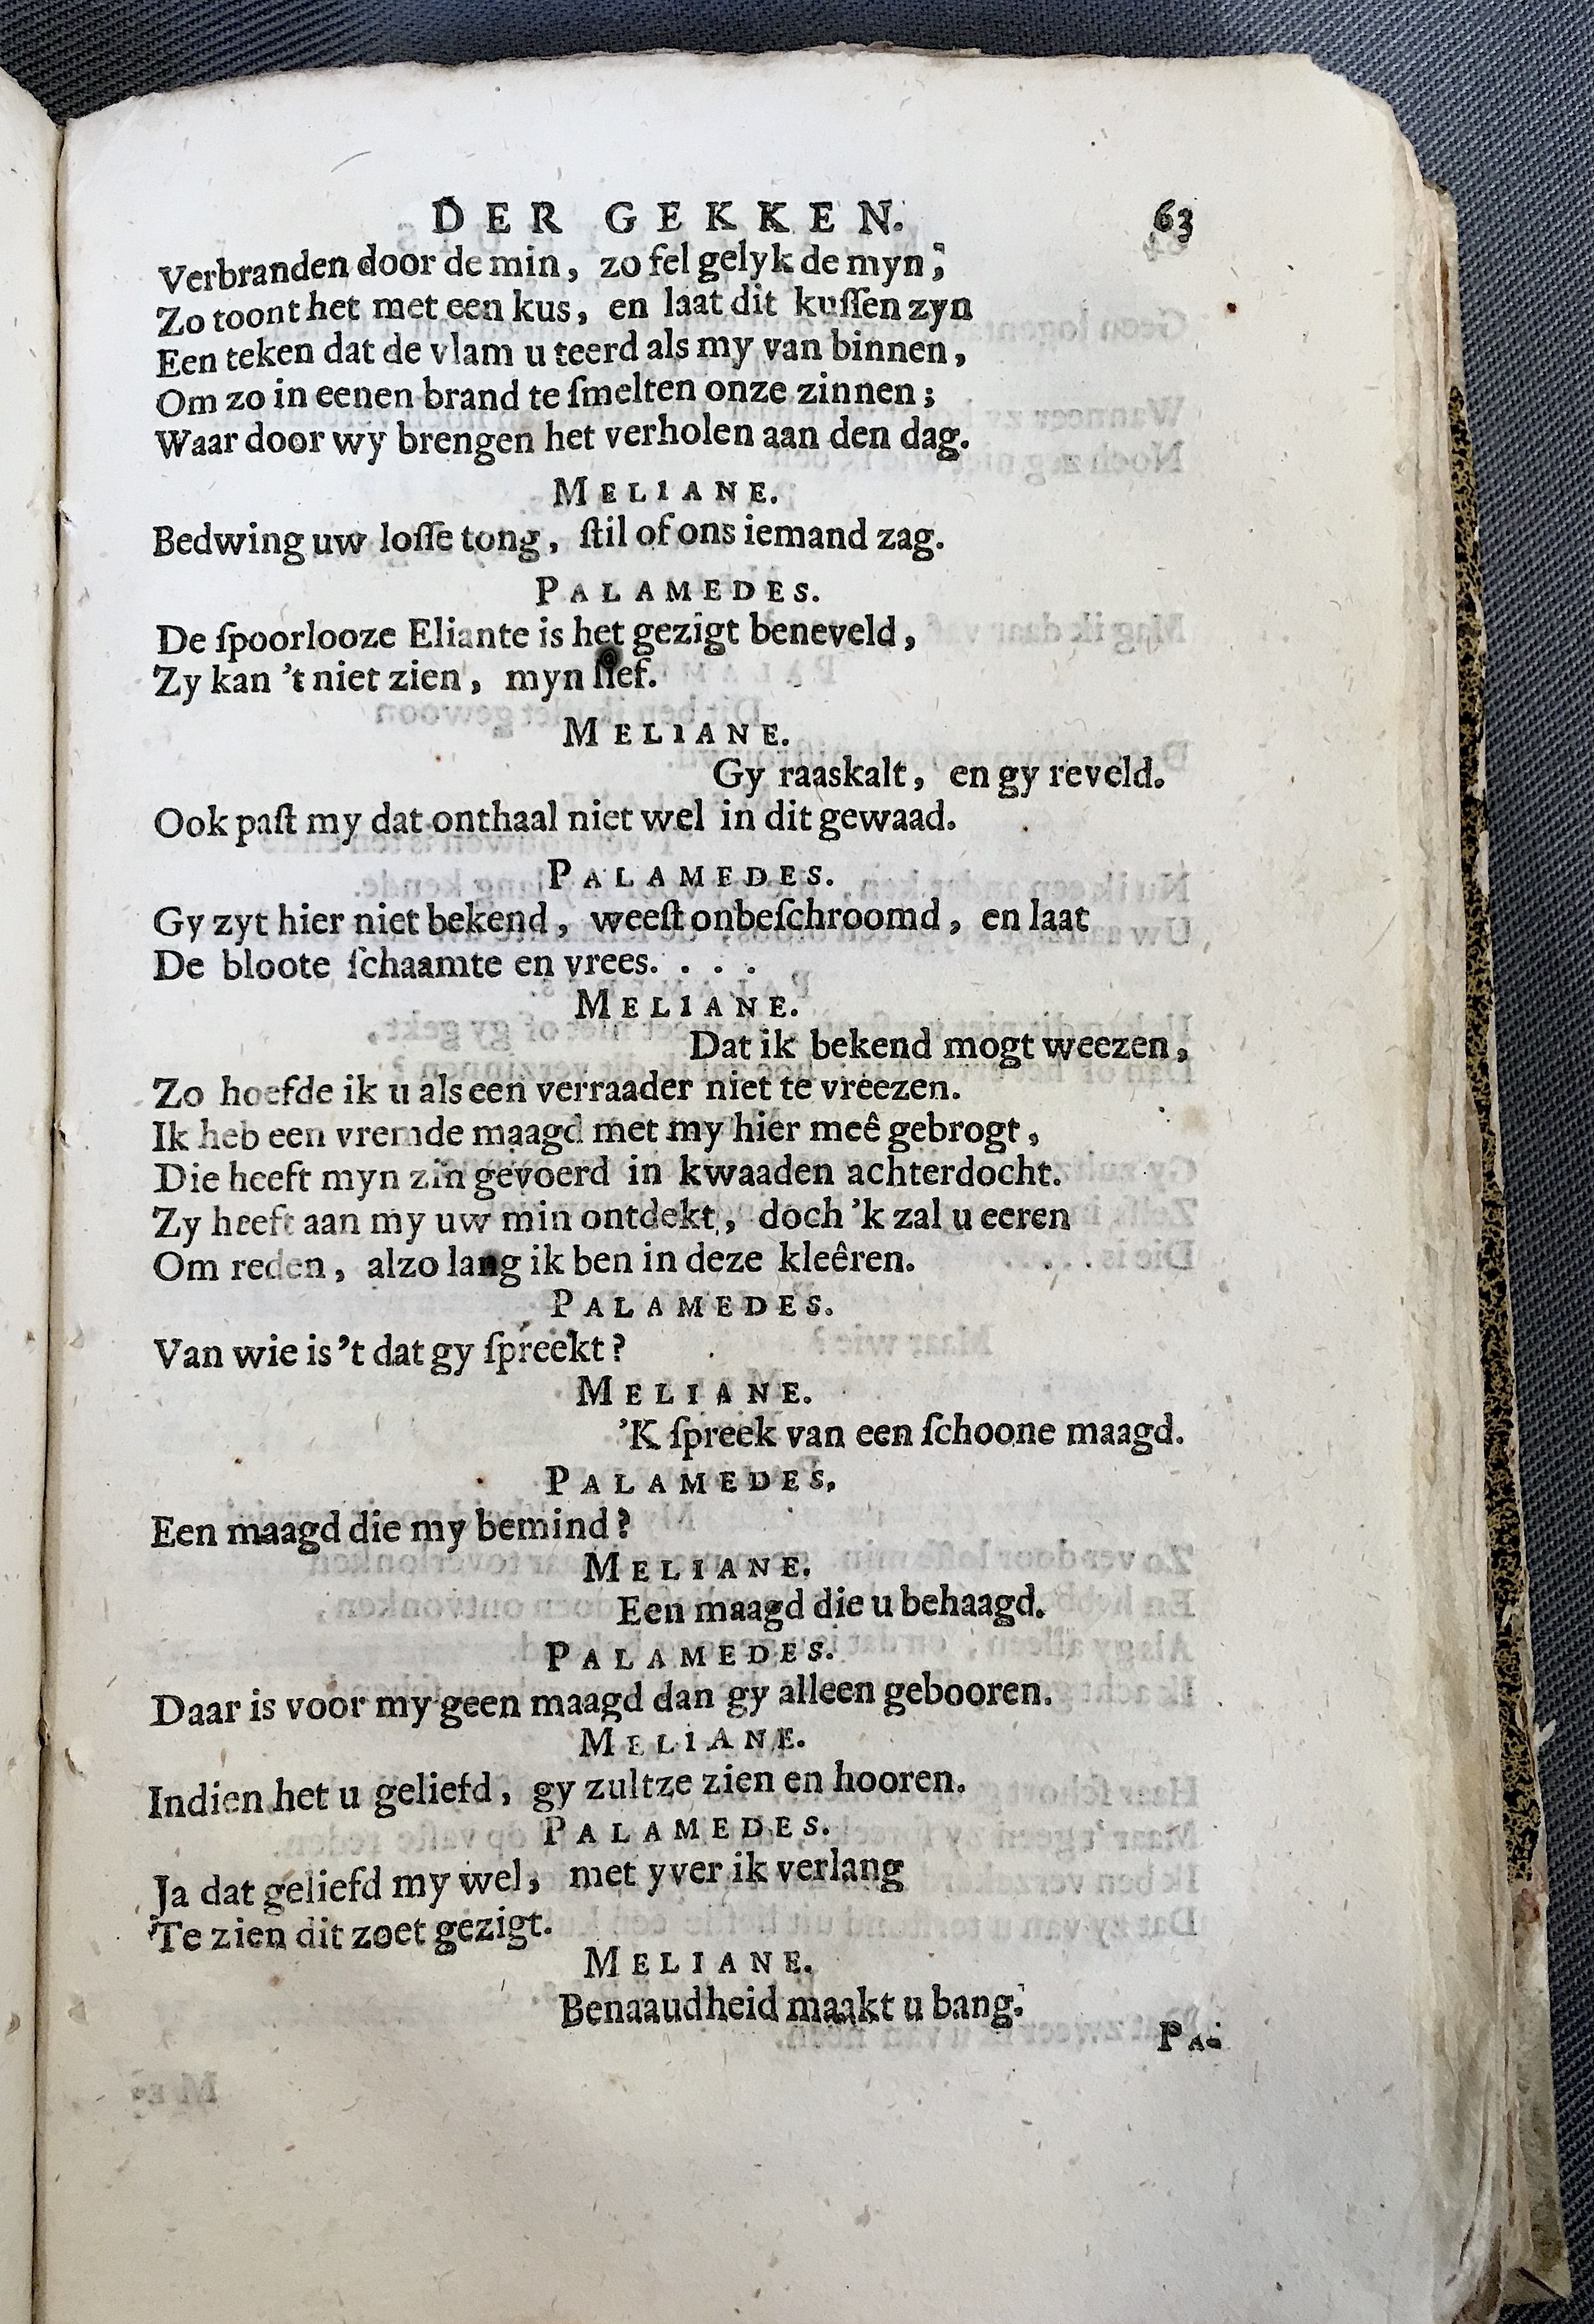 DER GEKKEN. 63
Verbranden door de min, zo fel gelyk de myn;
Zo toont het met een kus, en laat dit kuſſen zyn
Een teken dat de vlam u teerd als my van binnen,
Om zo in eenen brand te ſmelten onze zinnen;
Waar door wy brengen het verholen aan den dag.
MELIANE.
Bedwing uw loſſe tong, ſtil of ons iemand zag.
PALAMEDES.
De ſpoorlooze Eliante is het gezigt beneveld,
Zy kan 't niet zien, myn lief.
MELIANE.
Gy raaskalt, en gy reveld.
Ook paſt my dat onthaal niet wel in dit gewaad.
PALAMEDES.
Gy zyt hier niet bekend, weeſt onbeſchroomd, en laat
De bloote ſchaamte en vrees. . . .
MELIANE.
Dat ik bekend mogt weezen,
Zo hoefde ik u als een verraader niet te vreezen.
Ik heb een vremde maagd met my hier meê gebrogt,
Die heeft myn zin gevoerd in kwaaden achterdocht.
Zy heeft aan my uw min ontdekt, doch 'k zal u eeren
Om reden, alzo lang ik ben in deze kleêren.
PALAMEDES.
Van wie is 't dat gy ſpreekt?
MELIANE.
'K ſpreek van een ſchoone maagd.
PALAMEDES,
Een maagd die my bemind?
MELIANE.
Een maagd die u behaagd.
PALAMEDES.
Daar is voor my geen maagd dan gy alleen gebooren.
MELIANE.
Indien het u geliefd, gy zultze zien en hooren.
PALAMEDES.
Ja dat geliefd my wel, met yver ik verlang
Te zien dit zoet gezigt.
MELIANE.
Benaaudheid maakt u bang.
PA-